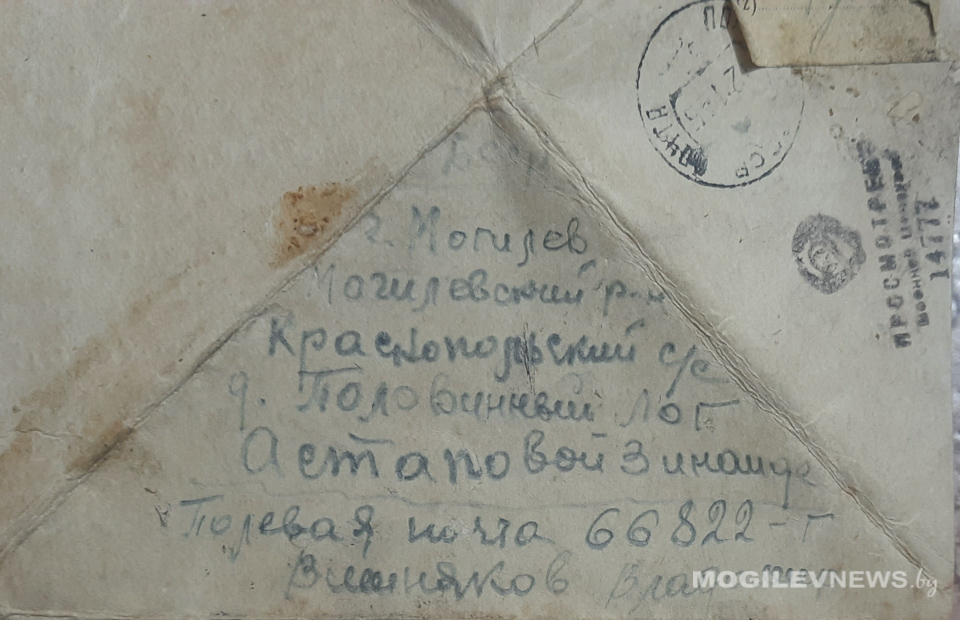 БССР
г. Могилев
Могилевский р-н
Краснопольский с/с
д. Половинный Лог
Астаповой Зинаиде
Полевая почта 66822-Г
Вишняков
ПОЧТА
ПРОСМОТРЕНО
Военной Цензурой
14772
MOGILEVNEWS.by